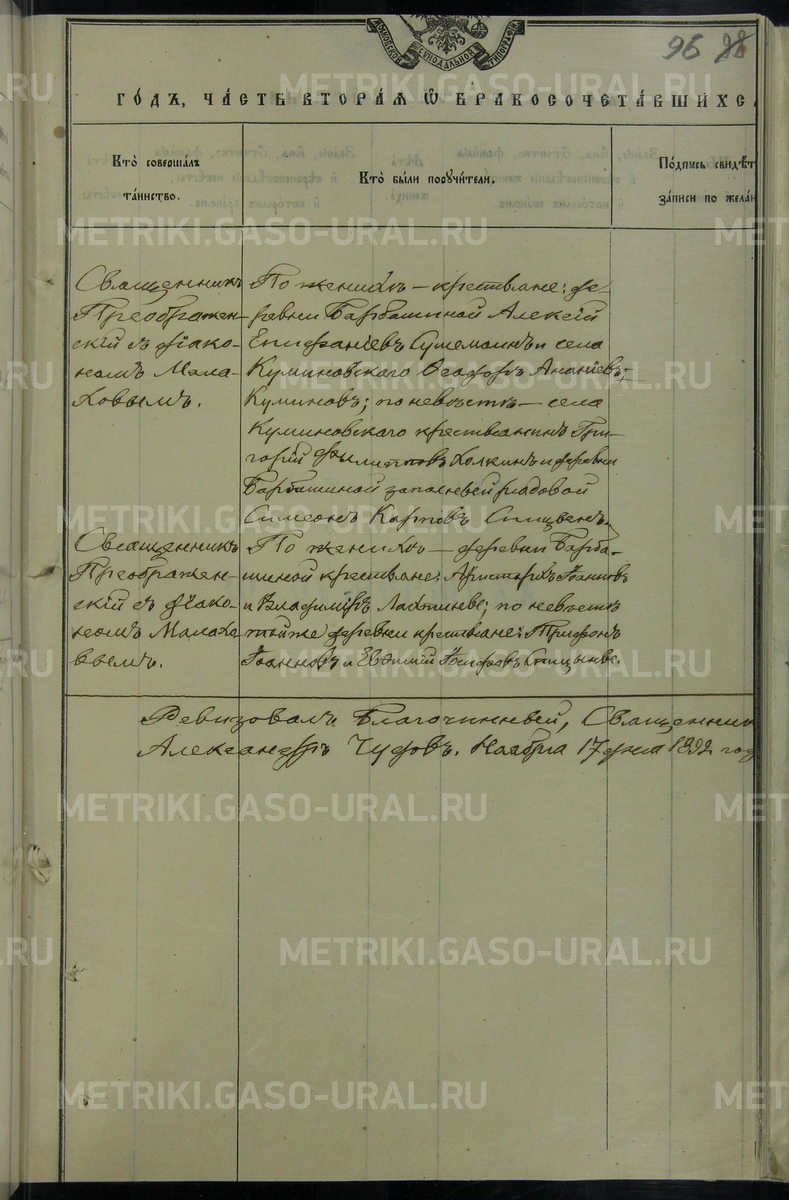 МОСКОВСКОЙ СѴНОДАЛЬНОЙ ТИПОГРАФІИ
96 88
ГО́ДЪ, ЧА́СТЬ ВТОРА́Я Ѽ БРАКОСОЧЕТА́ВШИХСѦ
Кто̀ соверша́лъ
та́инство.
Кто̀ бы́ли поручи́тели.
По́дпись свидѣт
за́писи по жела́н
Священникъ
Преображен-
скій съ діако-
номъ Мала-
ховымъ.
По женихѣ — крестьяне: де-
ревни Барбашиной Алексій
Епифаніевъ и села
Куминовскаго Ѳеодоръ Ананіевъ
Куминовъ; по невѣстѣ — села
Куминовскаго крестьянинъ Гри-
горій Филипповъ Холкинъ и деревни
Барбашиной запасный рядовой
Симеонъ Карповъ Спицынъ.
Священникъ
Преображен-
скій съ діако-
номъ Малахо
вымъ.
По женихѣ — деревни Барба-
шиной крестьяне: Аристархъ Іоанновъ
и Владиміръ Лахтины; по невѣстѣ
той же деревни крестьяне: Трифонъ
Іоанновъ и Евѳимій Спицыны.
Ревизовалъ Благочинный, Священник
Александръ Чудовъ. Ноября 17 дня 1892 год
METRIKI.GASO-URAL.RU